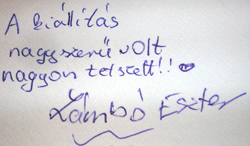 A kiállítás
nagyszerű volt
nagyon tetszett!!
Zámbó Eszter